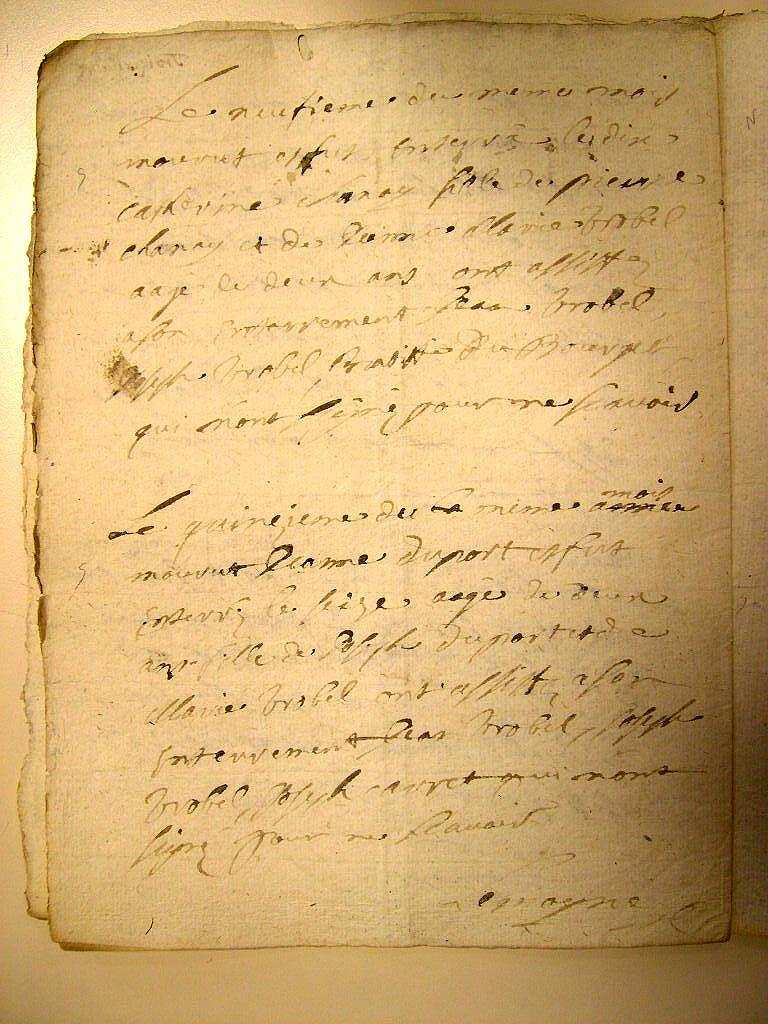 Le neufieme du meme mois
mourut et fut enterré le dix
catherine chanay fille de pierre
chanay et de Jeanne Marie trobel
aagé de deux ans ont assisté
a son enterrement Jean trobel,
Joseph trobel, du Bourget
qui n'ont signé pour ne scavoir
Le quinzieme du le meme mois
mourut Jeanne duport et fut
enterré le seize aagé de deux
ans fille de Joseph duport et de
Marie trobel ont assisté a son
enterrement Jean trobel, Joseph
trobel, Joseph carret qui n'ont
signé pour ne scavoir